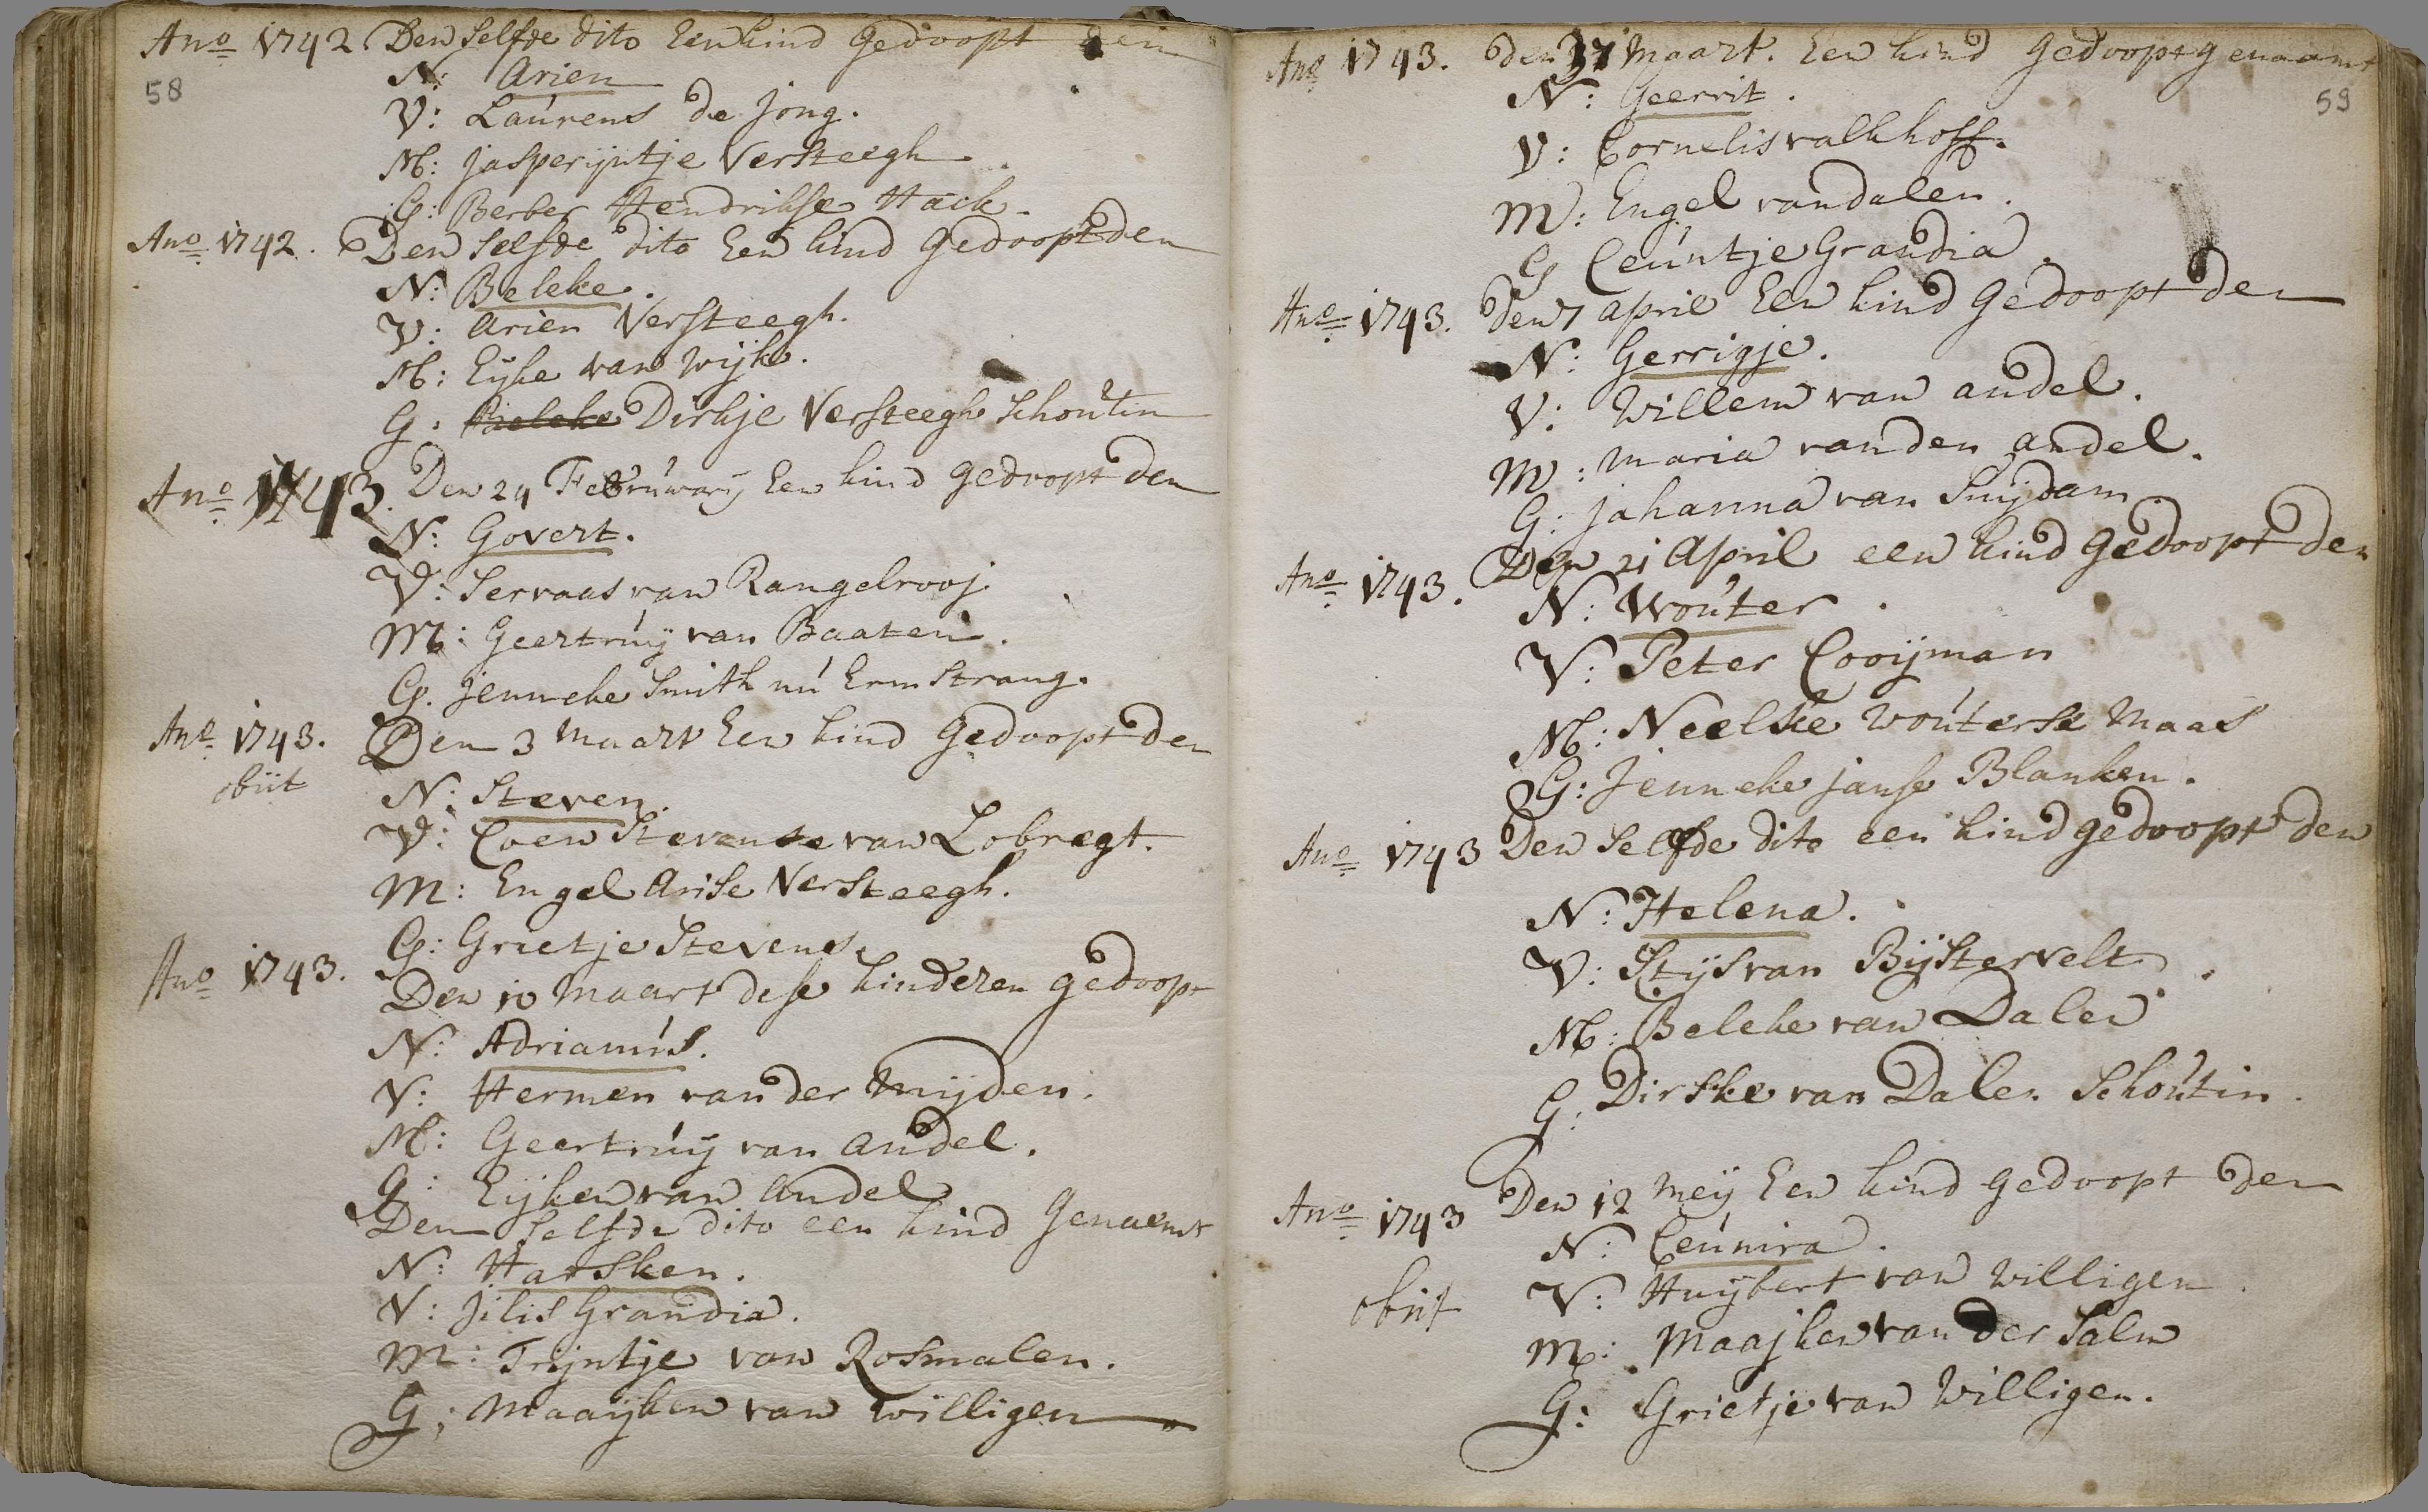 Ano 1742 Den Selfde dito Een kind Gedoopt den
58
N: Arien
V: Laúrens de Jong.
M: Jasperijntje Versteegh
G: Berber Hendrikse Hack.
Ano 1742. Den Selfde dito Een kind Gedoopt den
N: Beleke.
V: Arien Versteegh.
M: Eyke van Wijk.
G: Beleke Dirkje Versteegh Schoútin
Ano 1743. Den 24 Febrúwarÿ Een kind Gedoopt den
N: Govert.
V: Servaas van Rangelrooj
M: Geertrúÿ van Baaten.
G. Jenneke Smith nú Ermstrang.
Ano 1743. Den 3 Maart Een kind Gedoopt den
obiit
N: Steven.
V: Coen Stevense van Lobregt.
M: Engel Arise Versteegh.
G: Grietje Stevens
Ano 1743. Den 10 Maart dese kinderen gedoopt
N: Adrianús.
V: Hermen van der Muÿden.
M: Geertrúÿ van Andel.
G: Eijken van Andel
Den Selfde dito een kind Genaemt
N: Harsken.
V: Jilis Grandia.
M: Trijntje van Rosmalen.
G: Maaÿken van Willigen
Ano 1743. den 31 Maart. Een kind Gedoopt genaamt
59
N: Geerrit.
V: Cornelis valkhoff.
M: Engel van dalen.
G Ceúntje Grandia.
Ano 1743. Den 7 april Een kind Gedoopt den
N: Gerrigje.
V: Willem van andel.
M: Maria van den andel.
G: Johanna van Suÿdam
Ano 1743. Den 21 April een kind Gedoopt den
N: Woúter.
V: Peter Cooÿman
M: Neelske Woúterse Maas
G: Jenneke Janse Blanken.
Ano 1743 Den Selfde dito een kind gedoopt den
N: Helena.
V: Stÿs van Bÿstervelt.
M: Beleke van Dalen
G: Dirske van Dalen Schoútin.
Ano 1743 Den 12 Meÿ Een kind Gedoopt den
N: Ceúnira.
obiit
V: Huÿbert van Willigen
M: Maaÿken van der Salm
G: Grietje van Willigen.